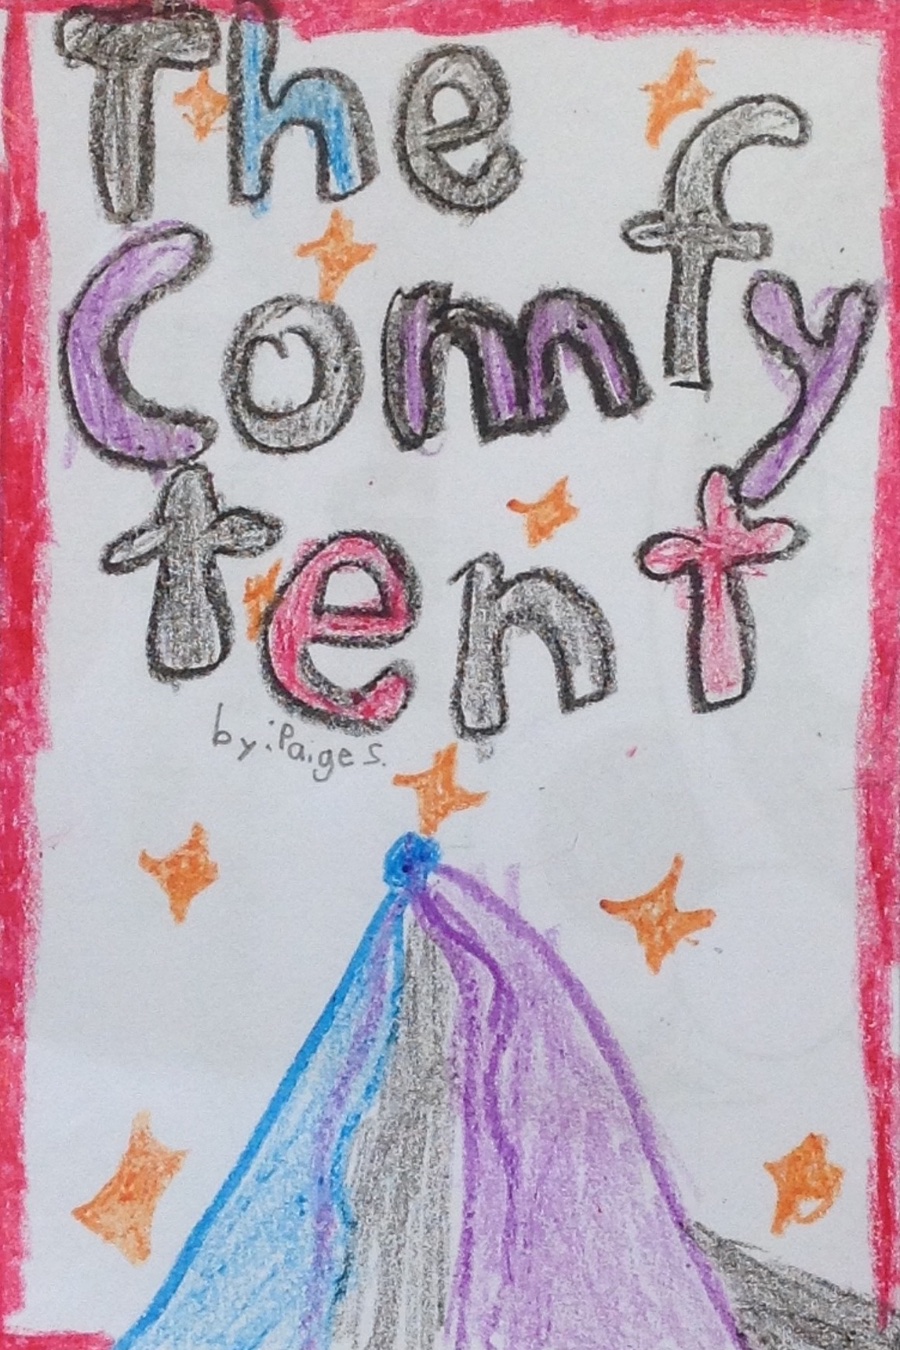 The
Comfy
tent
by: Paige S.